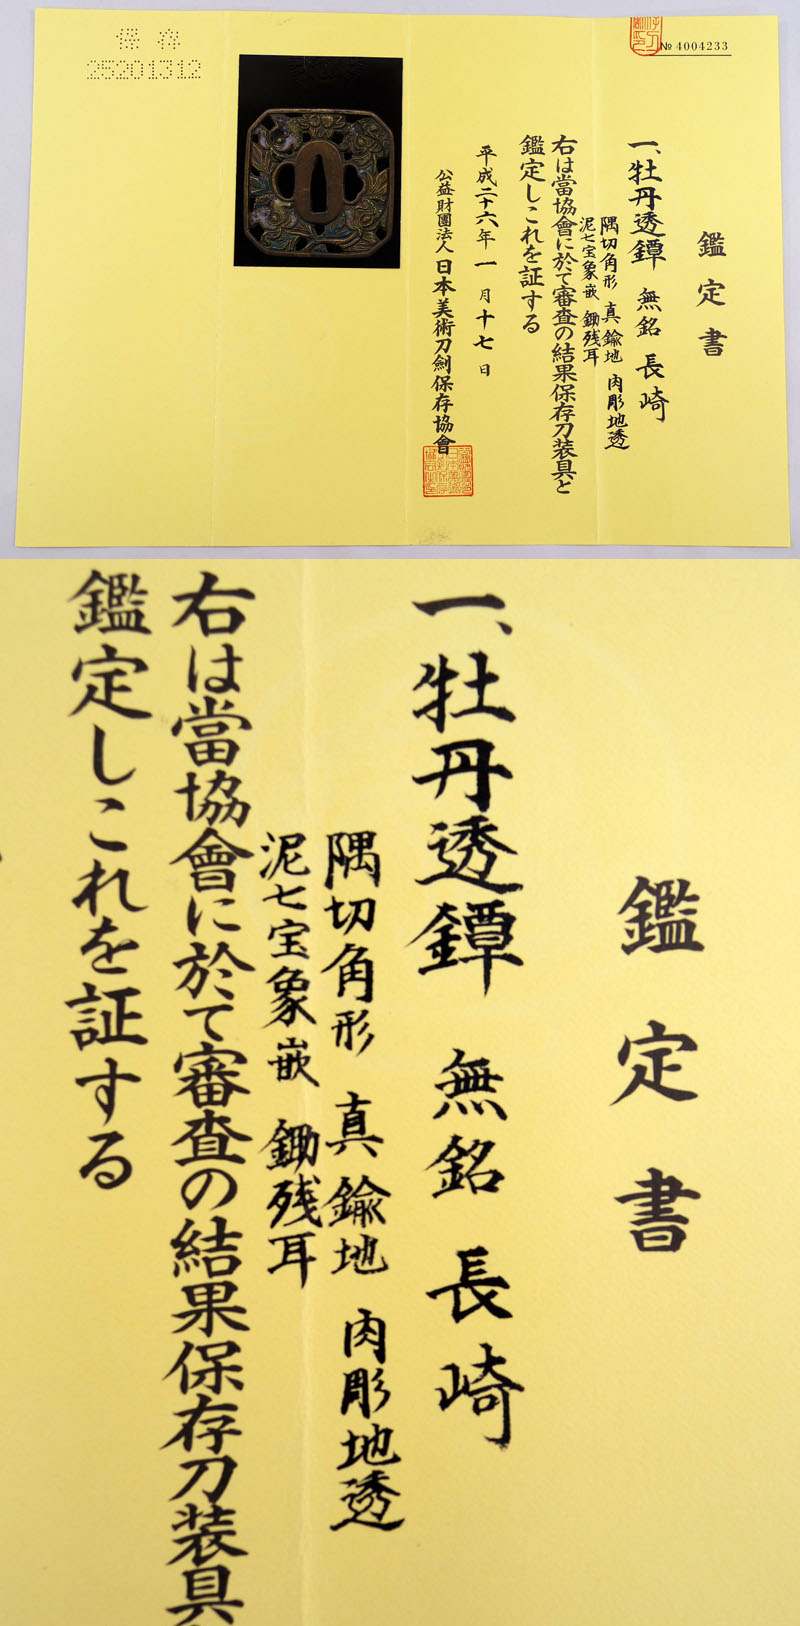 保存
25201312
№ 4004233
鑑定書
一、牡丹透鐔 無銘 長崎
隅切角形 真鍮地 肉彫地透
泥七宝象嵌 鋤残耳
右は當協會に於て審査の結果保存刀装具と
鑑定しこれを証する
平成二十六年一月十七日
公益財團法人 日本美術刀劍保存協會
鑑定書
一、牡丹透鐔 無銘 長崎
隅切角形 真鍮地 肉彫地透
泥七宝象嵌 鋤残耳
右は當協會に於て審査の結果保存刀装具
鑑定しこれを証する